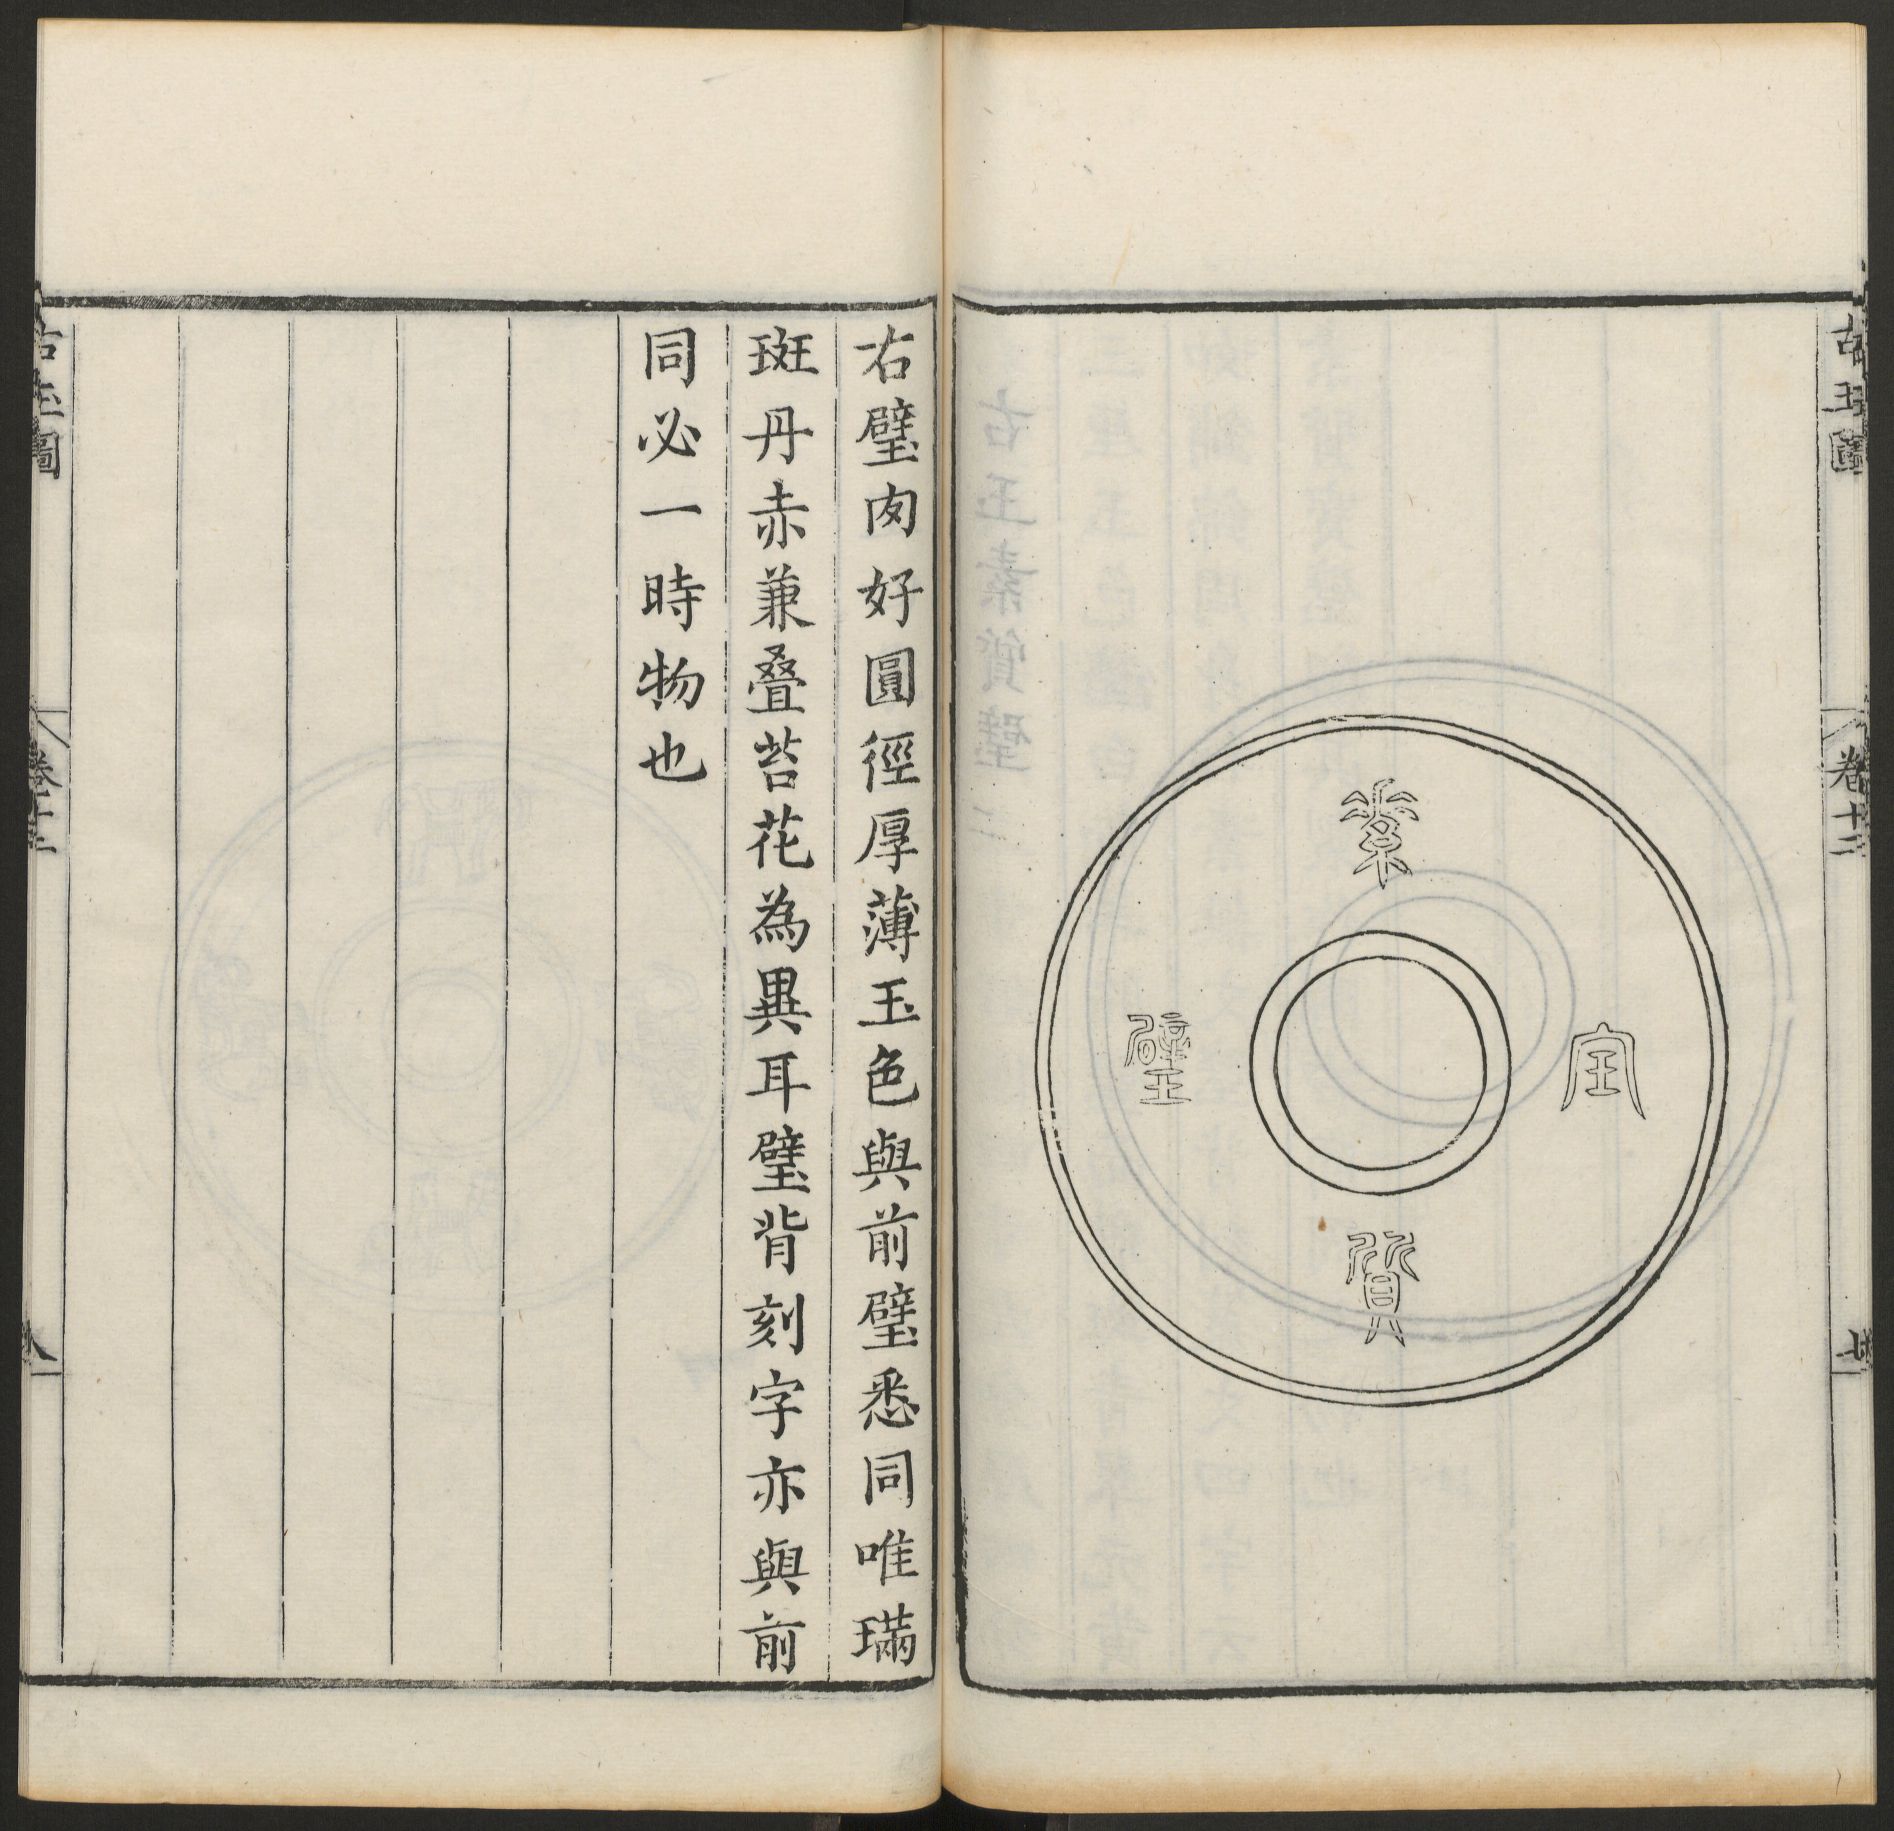 古玉圖
卷十二
七
素
宝
質
璧
右璧肉好圓徑厚薄玉色與前璧悉同唯璊
斑丹赤兼叠苔花為異耳璧背刻字亦與前
同必一時物也
古玉圖
卷十二
八